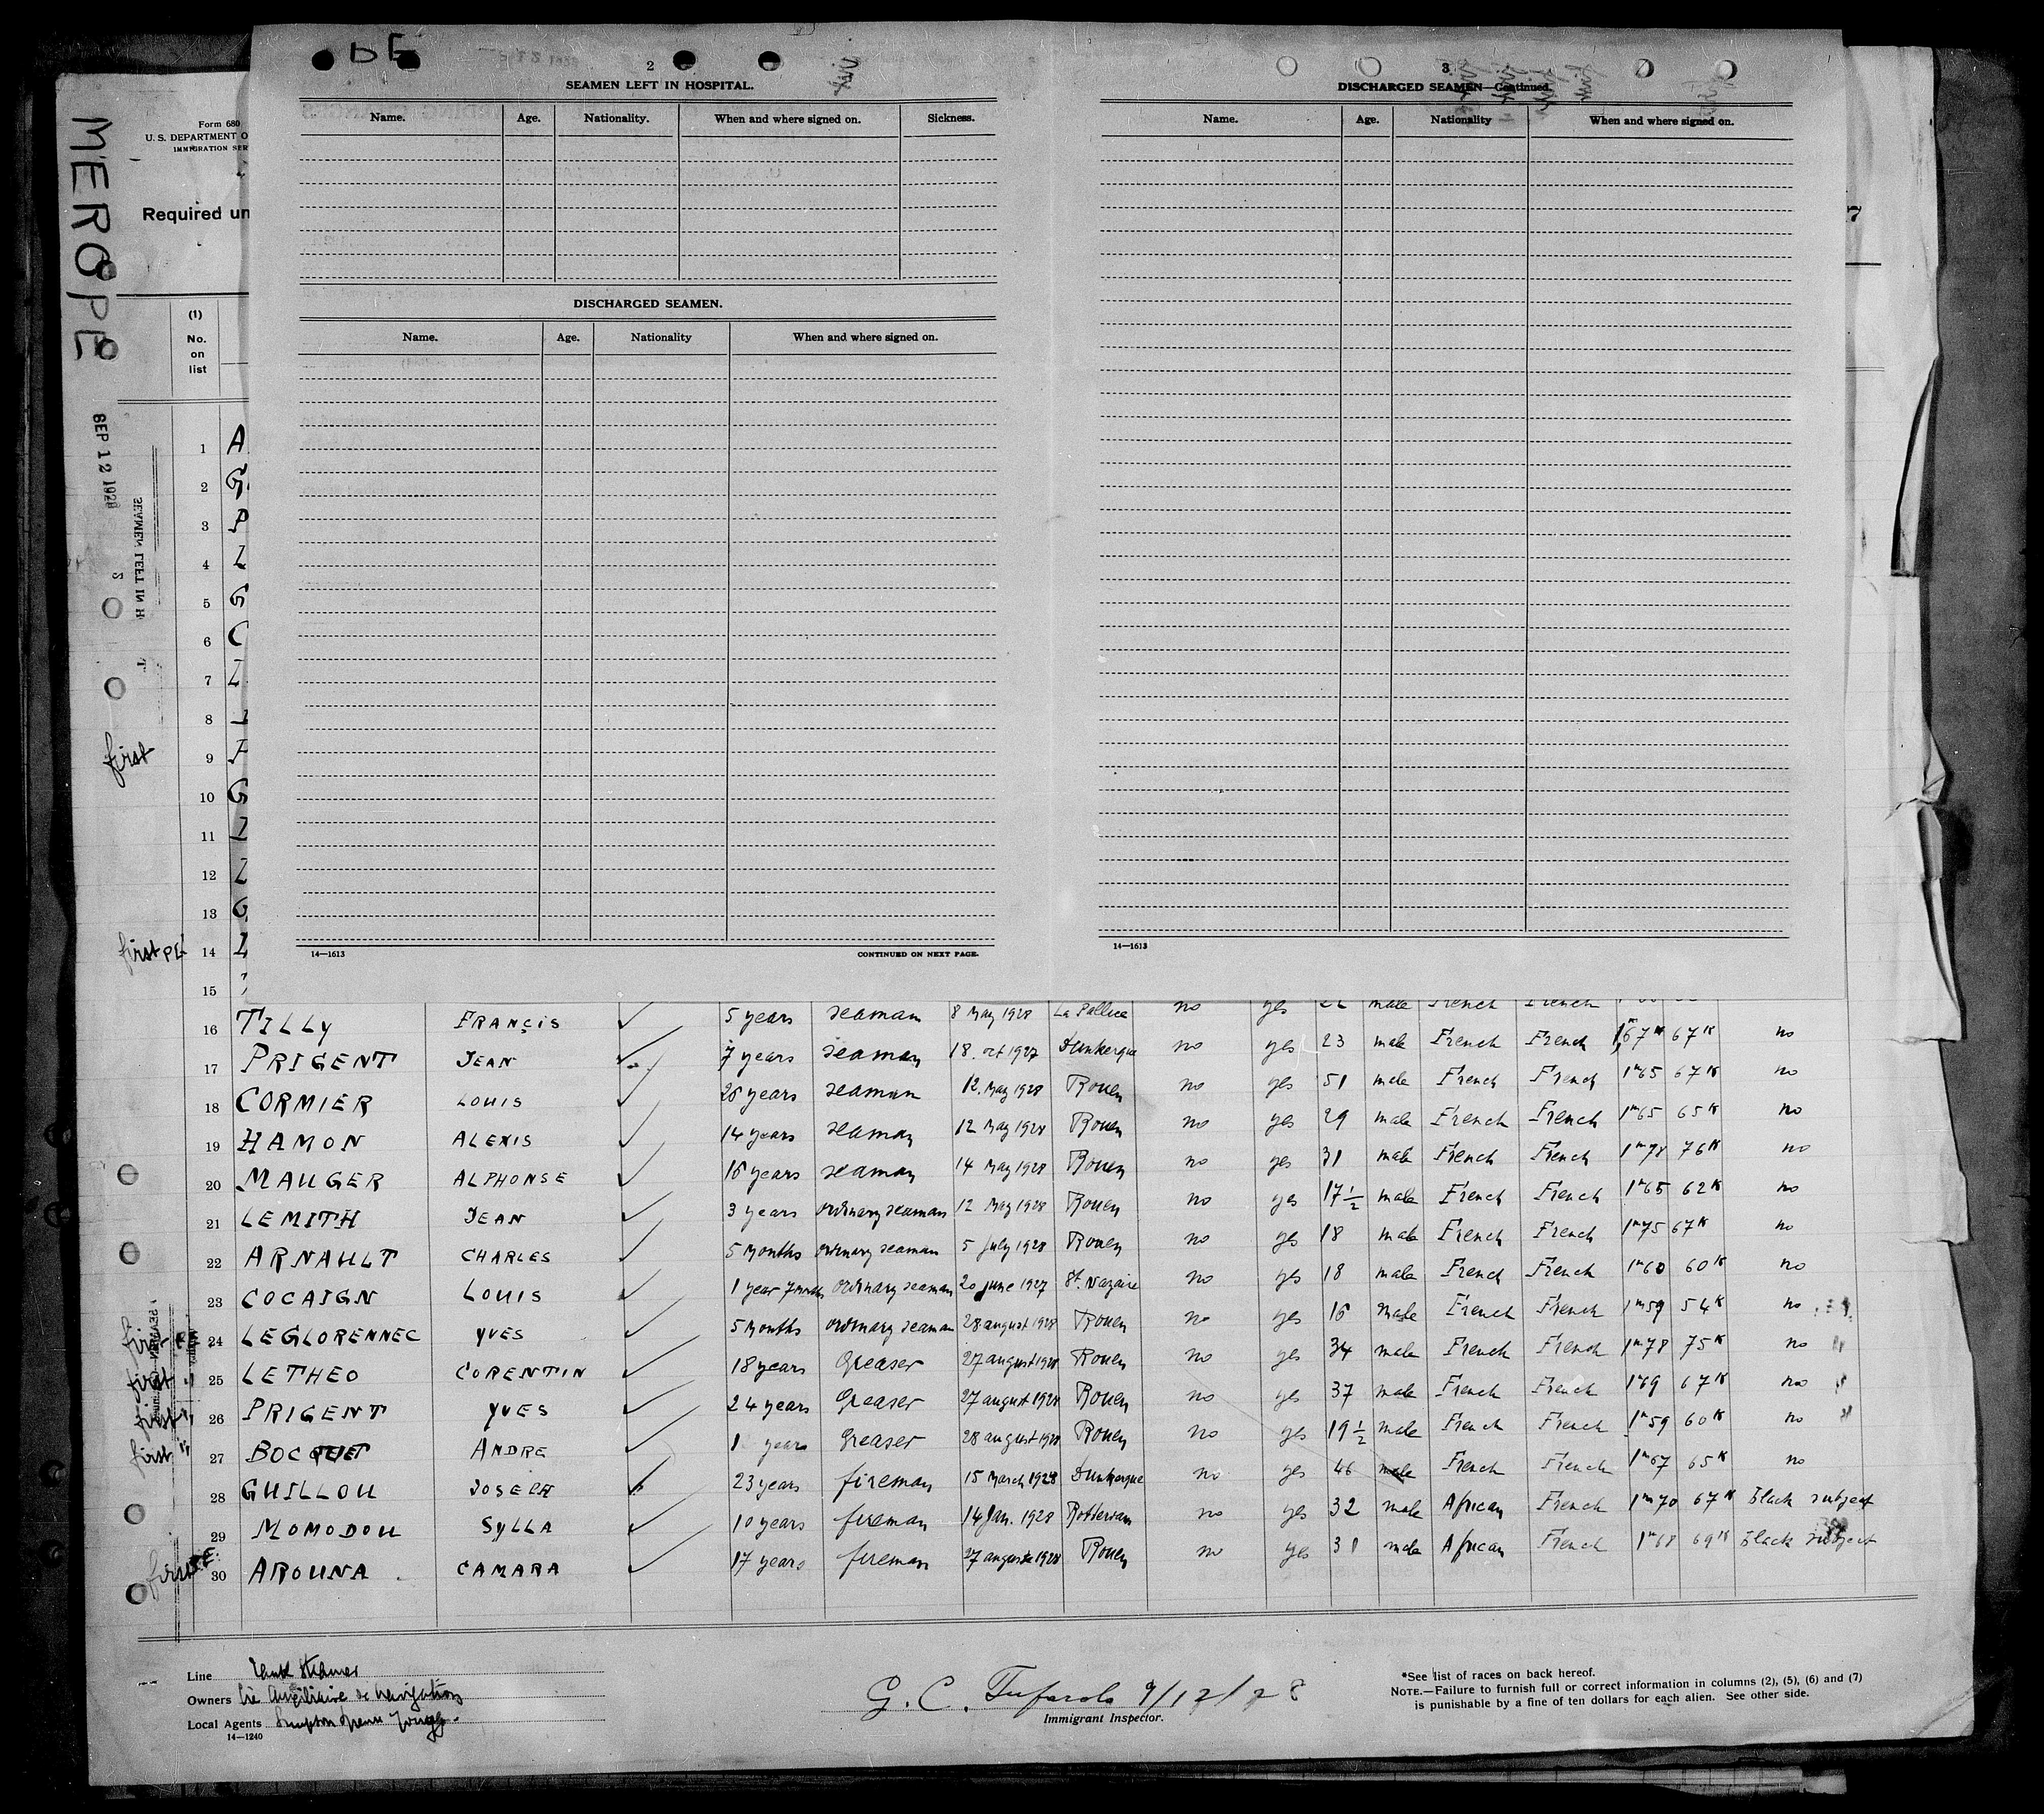 DE
2
SEAMEN LEFT IN HOSPITAL.
Name. Age. Nationality. When and where signed on. Sickness.
DISCHARGED SEAMEN.
Name. Age. Nationality When and where signed on.
14—1613 CONTINUED ON NEXT PAGE.
3
DISCHARGED SEAMEN—Continued.
Name. Age. Nationality When and where signed on.
14—1613
MEROPE
SEP 12 1928
Form 680
U. S. DEPARTMENT O
IMMIGRATION SER
Required un
(1)
No.
on
list
1 A
2 G
3 P
4 L
5 G
6 C
7 L
8
first 9
10 G
11
12 L
13 G
first PE 14 L
15
16 TILLY FRANÇIS 5 years seaman 8 May 1928 La Pallice no yes 22 male French French
17 PRIGENT JEAN 7 years seaman 18. oct 1927 Dunkerque no yes 23 male French French 1,67 67K no
18 CORMIER LOUIS 26 years seaman 12. May 1928 Rouen no yes 51 male French French 1m65 67K no
19 HAMON ALEXIS 14 years seaman 12 May 1928 Rouen no yes 29 male French French 1m65 65K no
20 MAUGER ALPHONSE 16 years seaman 14 May 1928 Rouen no yes 31 male French French 1m78 76K no
21 LEMITH JEAN 3 years ordinary seaman 12 May 1928 Rouen no yes 17½ male French French 1m65 62K no
22 ARNAULT CHARLES 5 months ordinary seaman 5 July 1928 Rouen no yes 18 male French French 1m75 67K no
23 COCAIGN LOUIS 1 year 7 months ordinary seaman 20 june 1927 St. Nazaire no yes 18 male French French 1m60 60K no
first PE 24 LEGLORENNEC YVES 5 months ordinary seaman 28 august 1928 Rouen no yes 16 male French French 1m59 54K no
first " 25 LETHEO CORENTIN 18 years Greaser 27 august 1928 Rouen no yes 34 male French French 1m78 75K no
first " 26 PRIGENT YVES 24 years Greaser 27 august 1928 Rouen no yes 37 male French French 1m69 67K no
first " 27 BOCQUET ANDRE 1 years Greaser 28 august 1928 Rouen no yes 19½ male French French 1m59 60K no
28 GUILLOU JOSEPH 23 years fireman 15 March 1928 Dunkerque no yes 46 male French French 1m67 65K no
29 MOMODOU SYLLA 10 years fireman 14 Jan. 1928 Rotterdam no yes 32 male African French 1m70 67K black subject
first PE 30 AROUNA CAMARA 17 years fireman 27 august 1928 Rouen no yes 31 male African French 1m68 69K black subject
Line Tank Steamer
Owners Cie Auxiliaire de Navigation
Local Agents Simpson Spence Young
14—1240
G. C. Tufarolo 9/12/28
Immigrant Inspector.
*See list of races on back hereof.
NOTE.—Failure to furnish full or correct information in columns (2), (5), (6) and (7)
is punishable by a fine of ten dollars for each alien. See other side.